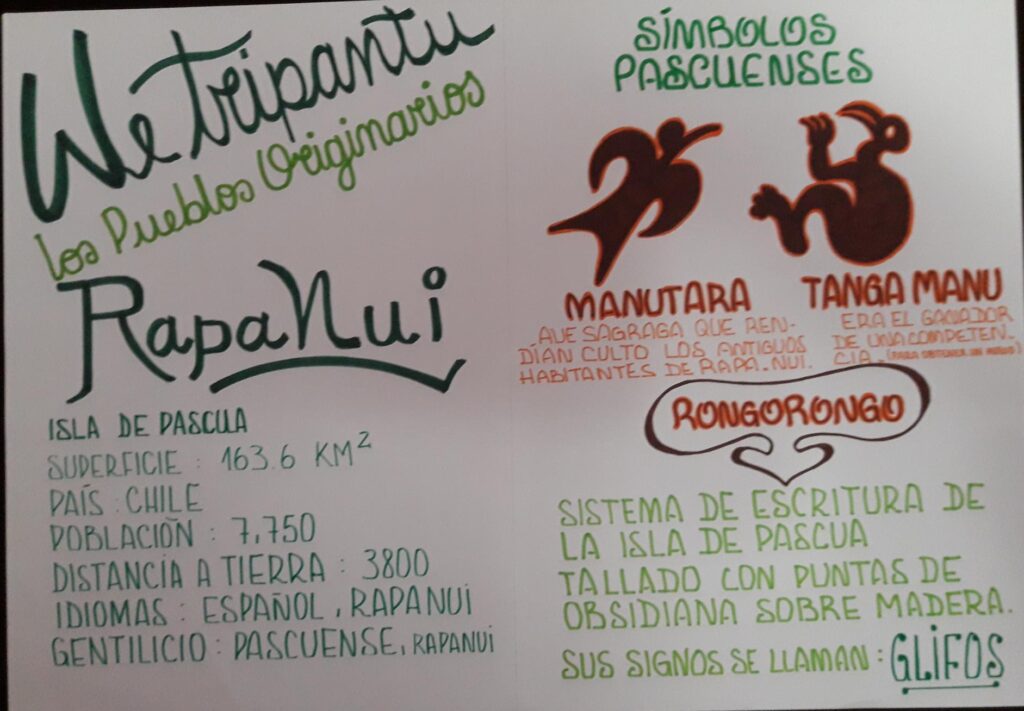 We Tripantu
los Pueblos Originarios
Rapa Nui
ISLA DE PASCUA
SUPERFICIE : 163.6 KM²
PAÍS : CHILE
POBLACIÓN : 7.750
DISTANCÍA A TIERRA : 3800
IDIOMAS : ESPAÑOL, RAPA NUI
GENTILICIO : PASCUENSE, RAPANUI
SÍMBOLOS
PASCUENSES
MANUTARA
AVE SAGRAGA QUE REN-
DÍAN CULTO LOS ANTIGUOS
HABITANTES DE RAPA-NUI.
TANGA MANU
ERA EL GANADOR
DE UNA COMPETEN-
CIA. (PARA OBTENER UN HUEVO)
RONGORONGO
SISTEMA DE ESCRITURA DE
LA ISLA DE PASCUA
TALLADO CON PUNTAS DE
OBSIDIANA SOBRE MADERA.
SUS SIGNOS SE LLAMAN : GLIFOS